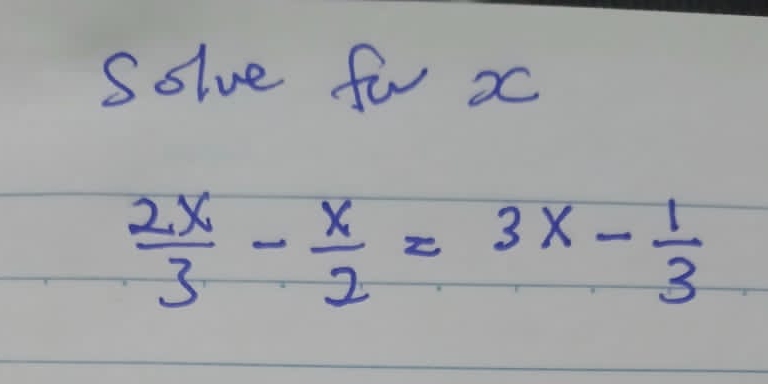 Solve for x
2x/3 - x/2 = 3x - 1/3